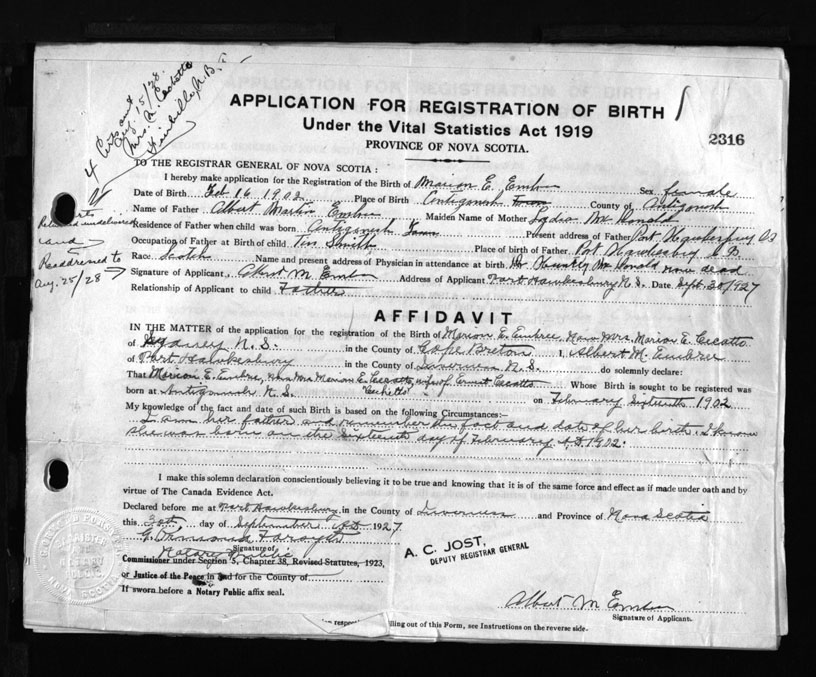 4 Certs out
Aug. 15/28.
Mrs. A Cechetto
N.B.
APPLICATION FOR REGISTRATION OF BIRTH
Under the Vital Statistics Act 1919
PROVINCE OF NOVA SCOTIA.
2316
TO THE REGISTRAR GENERAL OF NOVA SCOTIA :
I hereby make application for the Registration of the Birth of Marion E. Embree Sex female
Date of Birth Feb 16 1902 Place of Birth Antigonish Town County of Antigonish
Name of Father Albert Martin Embree Maiden Name of Mother Lydia McDonald
Residence of Father when child was born Antigonish Town Present address of Father Port Hawkesbury CB
Occupation of Father at Birth of child Tin Smith Place of birth of Father Port Hawkesbury C B
Race Scotch Name and present address of Physician in attendance at birth Dr Huntly McDonald now dead
Signature of Applicant Albert M. Embree Address of Applicant Port Hawkesbury N.S. Date Sept. 20/1927
Relationship of Applicant to child Father
Certs.
Returned undelivered
and
Readdressed to
Aug. 25/28
AFFIDAVIT
IN THE MATTER of the application for the registration of the Birth of Marion E. Embree, Now Mrs. Marion E. Cicatto
of Sydney N.S. in the County of Cape Breton I, Albert M. Embree
of Port Hawkesbury in the County of Inverness N.S. do solemnly declare:
That Marion E. Embree, Now Mrs Marion E. Cicatto, wife of Ernest Cicatto Whose Birth is sought to be registered was
"Cechetto"
born at Antigonish N.S. on February Sixteenth 1902
My knowledge of the fact and date of such Birth is based on the following Circumstances:—
I am her father and remember the fact and date of her birth. I know
she was born on the Sixteenth day of February A.D. 1902.
I make this solemn declaration conscientiously believing it to be true and knowing that it is of the same force and effect as if made under oath and by
virtue of The Canada Evidence Act.
Declared before me at Port Hawkesbury in the County of Inverness and Province of Nova Scotia
this 20th day of September A.D. 1927
Notary Public
Signature of
Commissioner under Section 5, Chapter 38, Revised Statutes, 1923,
or Justice of the Peace in and for the County of
If sworn before a Notary Public affix seal.
A. C. JOST,
DEPUTY REGISTRAR GENERAL
Albert M Embree
Signature of Applicant.
filling out of this Form, see Instructions on the reverse side.